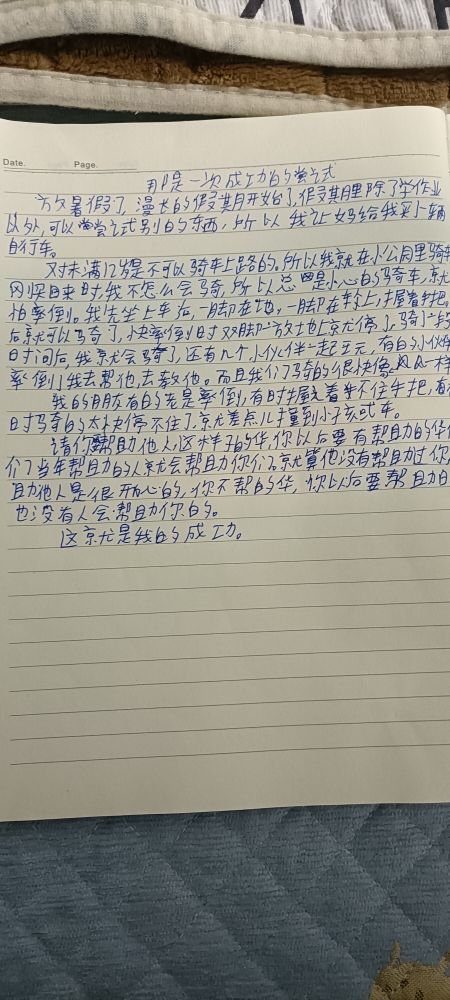 Date. Page.
那是一次成功的尝试
放暑假了,漫长的假期开始了,假期里除了学作业
以外,可以尝尝试别的东西,所以我让妈给我买了辆
自行车。
对未满12岁是不可以骑车上路的。所以我就在小公园里骑车
刚买回来时,我不怎么会骑,所以总是小心的骑车,就
怕摔倒。我先坐上车后,一脚在地,一脚在车上,握着手把。
后就可以骑了,快摔倒时双脚一放地上就停了。骑了一段
时间后,我就会骑了,还有几个小伙伴一起玩,有的小伙伴
摔倒了我去帮他,去教他。而且我们骑的很快像风一样
我的朋友有的老是摔倒,有时握着手不住手把,有
时骑的太快停不住了,就差点儿撞到小孩或车。
请你帮助他人,这样子的华,你以后要有帮助的华
们当年帮助的人就会帮助你们,就算他没有帮助过你,
助他人是很开心的,你不帮的华,你以后要帮助
也没有人会帮助你的。
这就是我的成功。